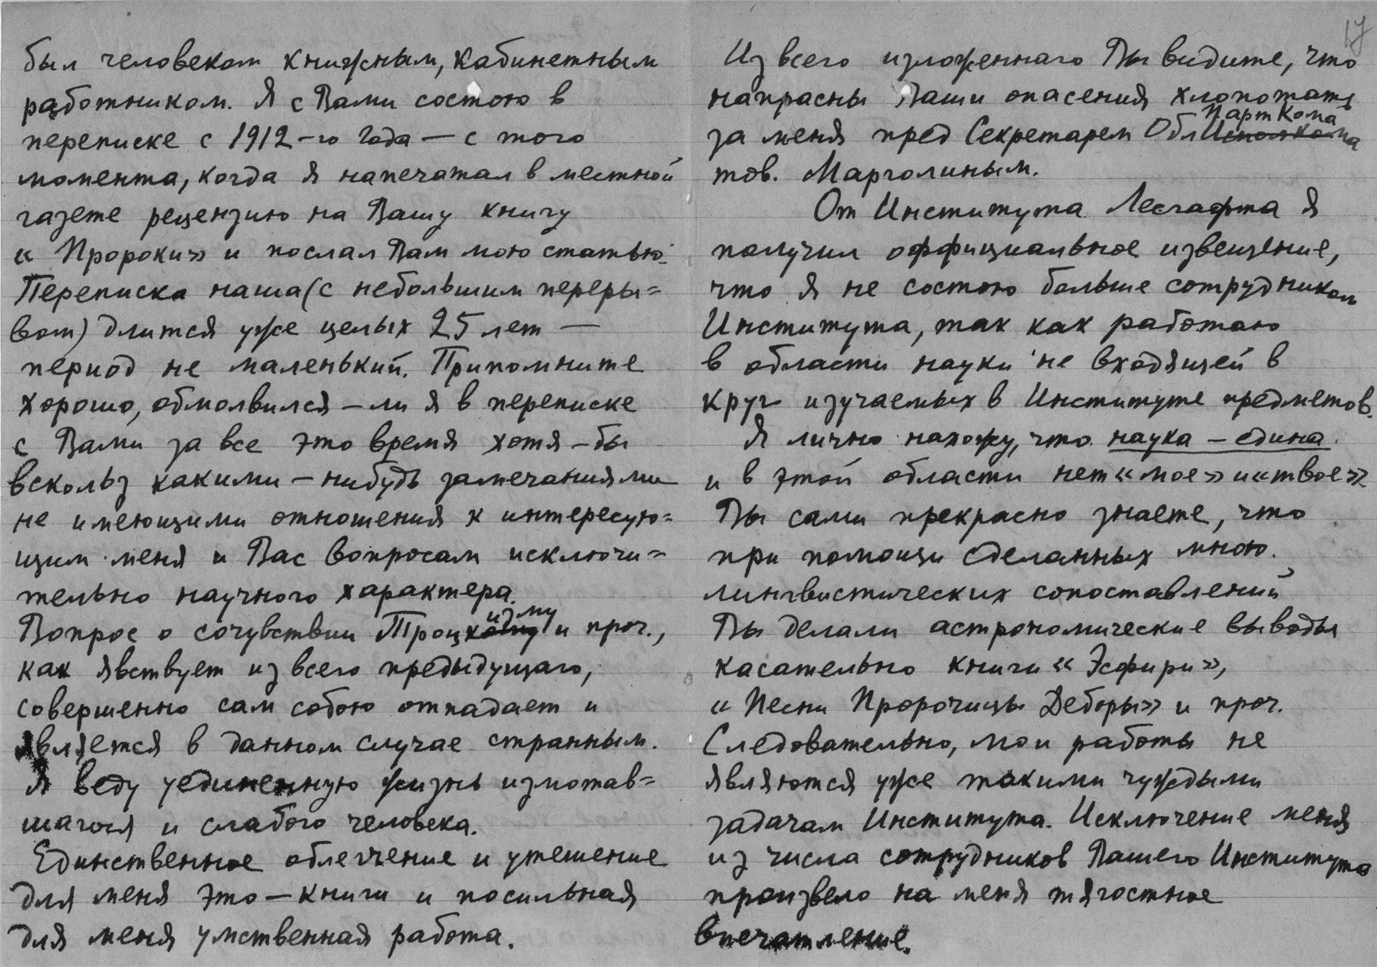 был человеком книжным, кабинетным
работником. Я с Вами состою в
переписке с 1912-го года — с того
момента, когда я напечатал в местной
газете рецензию на Вашу книгу
« Пророки» и послал Вам мою статью.
Переписка наша (с небольшим переры=
вом) длится уже целых 25 лет —
период не маленький. Припомните
хорошо, обмолвился – ли я в переписке
с Вами за все это время хотя – бы
вскользь какими – нибудь замечаниями
не имеющими отношения к интересую=
щим меня и Вас вопросам исключи=
тельно научного характера.
Вопрос о сочувствии Троцкизму и проч.,
как явствует из всего предыдущаго,
совершенно сам собою отпадает и
является в данном случае странным.
Я веду уединенную жизнь измотав=
шагося и слабого человека.
Единственное облегчение и утешение
для меня это – книги и посильная
для меня умственная работа.
17
Из всего изложеннаго Вы видите, что
напрасны Ваши опасения хлопотать
за меня пред Секретарем ОблПартКома
тов. Марголиным.
От Института Лесгафта я
получил оффициальное извещение,
что я не состою больше сотрудником
Института, так как работаю
в области науки не входящей в
круг изучаемых в Институте предметов.
Я лично нахожу, что наука – едина
и в этой области нет «мое» и «твое»
Вы сами прекрасно знаете, что
при помощи сделанных мною
лингвистических сопоставлений
Вы делали астрономические выводы
касательно книги « Эсфири»,
« Песни Пророчицы Деборы» и проч.
Следовательно, мои работы не
являются уже такими чуждыми
задачам Института. Исключение меня
из числа сотрудников Вашего Института
произвело на меня тягостное
впечатление.